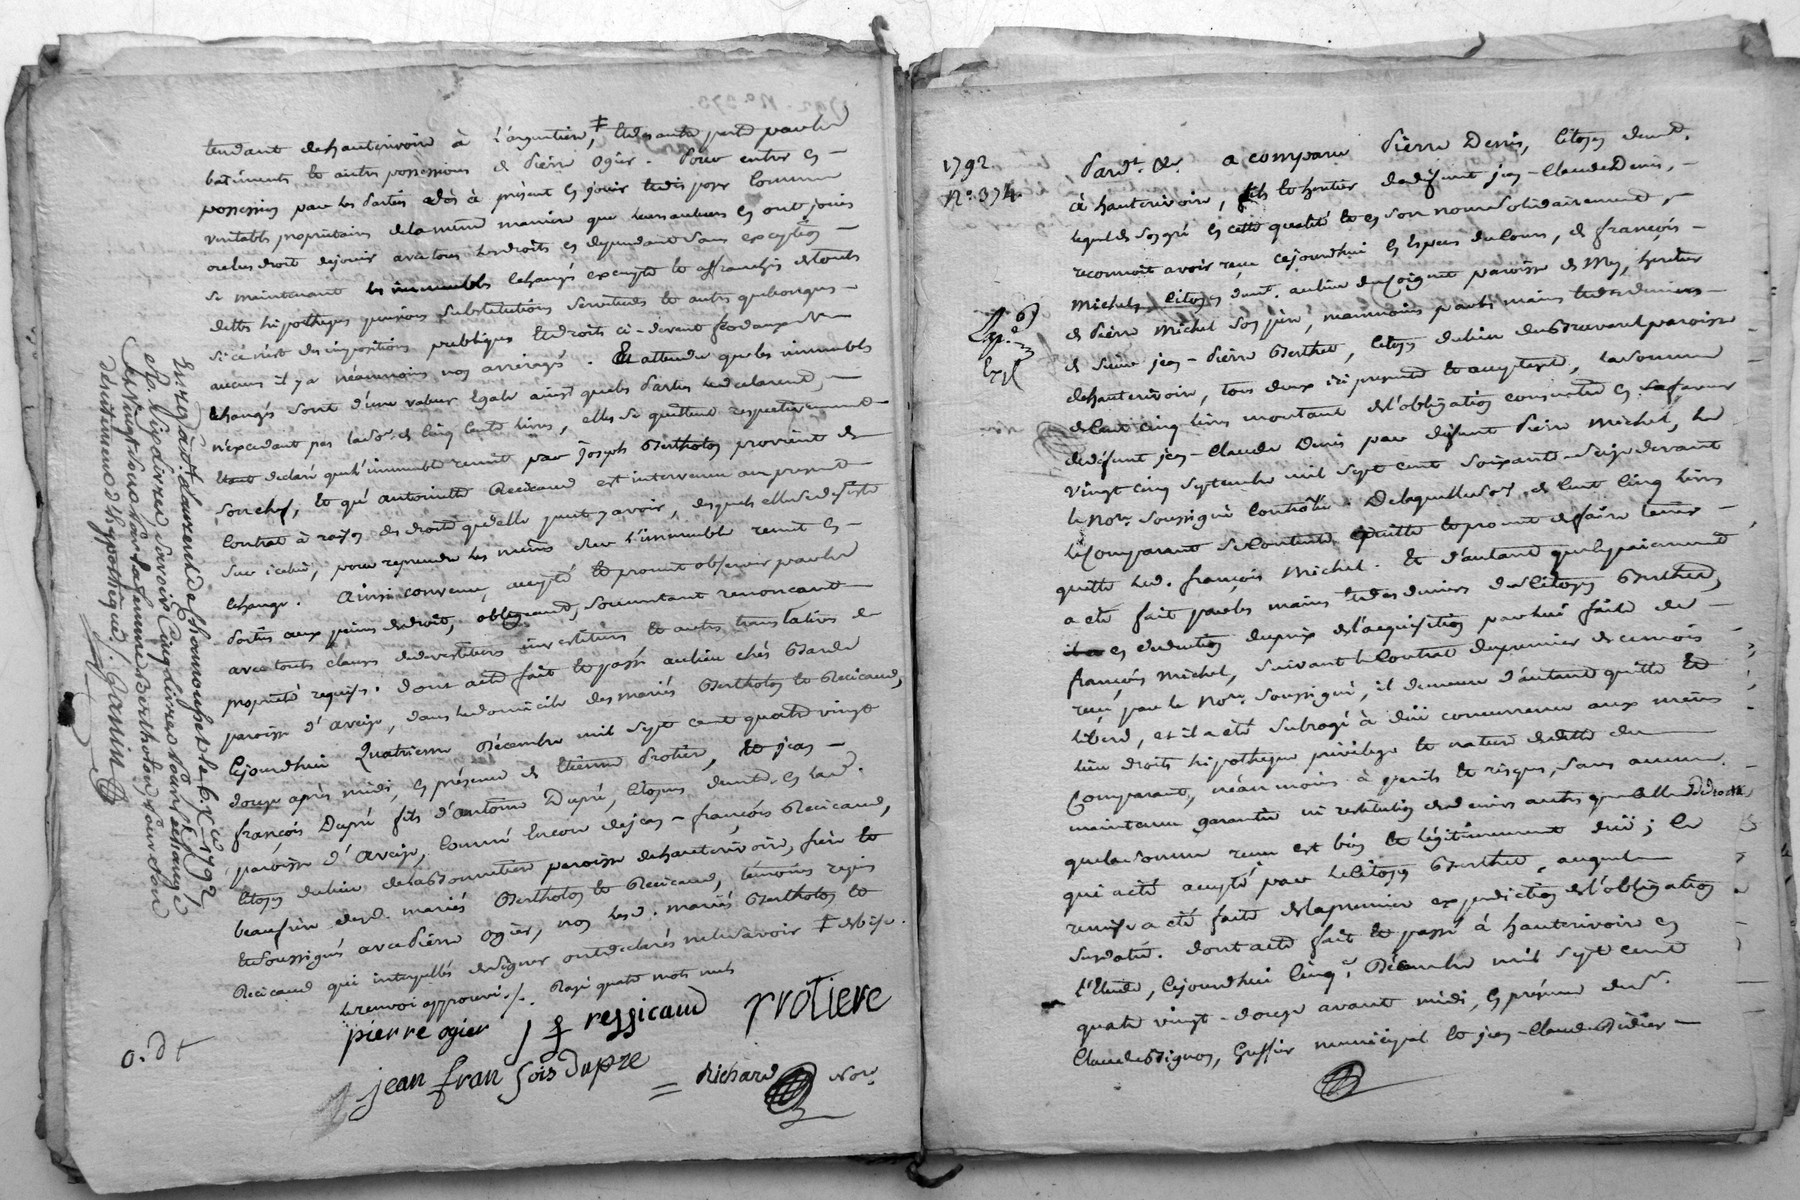 tendant de hauterivoire à L'argentiere, ‡ et des autres parts par les
batiments et autres possessions de pierre ogier. pour entrer en
possession par les parties dès à présent en jouir et disposer comme
veritables proprietaires de la meme maniere que leurs auteurs en ont joui
ou eu droit de jouir avec tous les droits en dependant sans exception
se maintenant les immeubles echangés exempts et affranchis de toutes
dettes hipotheques pensions substitutions servitudes et autres quelconques
si ce n'est des impositions publiques et droits ci-devant féodaux si
aucuns il y a néanmoins nos arrérages. Et attendu que les immeubles
échangés sont d'une valeur égale ainsi que les parties le declarent,
n'excedant pas la so.e de cinq cents livres, elles se quittent respectivement
etant declaré que l'immeuble remit par joseph Bertholon provient de
son chef, et qu'antoinette Recicaud est intervenue au present
contrat à raison des droits qu'elle peut y avoir, desquels elle se desiste
sur icelui, pour reprendre les mêmes sur l'immeuble remit en
échange. Ainsi convenu, accepté et promit observer par les
parties aux peines de droit, obligeant, soumettant renoncant
avec toutes clauses de devestiture investiture et autres translatives de
propriété requises. dont acte fait et passé au lieu chés Barde
paroisse d'aveize, dans le domicile des mariés Bertholon et Recicaud,
Cejourdhui Quatrieme Décembre mil sept cent quatre vingt
douze après midi, en présence de Etienne Protier, et jean
françois Dupré fils d'antoine Dupré, citoyens demt. en lad.
paroisse d'Aveize, comme encore de jean-françois Recicaud,
citoyen du lieu de la Bonnetiere paroisse de hauterivoire, frere et
beaufrere desd. mariés Bertholon et Recicaud, temoins requis
et soussignés avec pierre ogier, non lesd. mariés Bertholon et
Recicaud qui interpellés de signer ont declarés ne le savoir ‡ de bise.
le renvoi approuvé ./. Rayé quatre mots nuls
pierre ogier j f ressicaud Protiere
jean fran sois dupre
= Richard Nore
o. d t
Enreg. à St. Laurent de Chamousset le 6. Xbre 1792
R. Dix livres savoir Cinq livres pour l'echange
et Vingt sous par la femme Bertholon pour son
désistement d'hypotheque ./. Granin
1792.
N° 374.
Pard.t &c. a comparu Pierre Denis, Citoyen demt.
à hauterivoire, fils et heritier de defunt jean-Claude Denis,
lequel de son gré en cette qualité et en son nom solidairement,
reconnoit avoir reçu cejourdhui en espèces de cours, de françois
Michel, Citoyen demt. au lieu du Coignet paroisse de Mey, heritier
de Pierre Michel son père, neanmoins par les mains et des deniers
de sieur jean-pierre Berthet, citoyen du lieu du Bravaret paroisse
de hauterivoire, tous deux ici presents et acceptants, la somme
de cent cinq livres montant de l'obligation consentie en sa faveur
de defunt jean-Claude Denis par defunt Pierre Michel, le
vingt cinq septembre mil sept cent soixante-seize devant
le No.re soussigné Contrôlé. De laquelle so.e de cent cinq livres
le Comparant se contente, quitte et promet de faire tenir
quitte led. françois Michel. Et d'autant que le paiement
a été fait par les mains et des deniers du Citoyen Berthet,
en deduction du prix de l'acquisition par lui faite de
françois Michel, suivant le Contrat du premier de ce mois
reçu par le No.re soussigné, il demeure d'autant quitte et
libéré, et il a été subrogé à due concurrence aux mêmes
lieu droits hipotheque privilege et nature de dette du
Comparant, néanmoins à perils et risques, sans aucune
maintenue garantie ni restitution de deniers autres que celle de droit
que la somme reçue est bien et légitimement due; ce
qui a été accepté par le citoyen Berthet, auquel
remise a été faite de la premiere expedition de l'obligation
susdatée. dont acte fait et passé à hauterivoire en
l'Etude, Cejourdhui Cinq.e Décembre mil sept cent
quatre vingt-douze avant midi, en présence de s.r
Claude Bignon, Greffier municipal et jean-Claude Didier